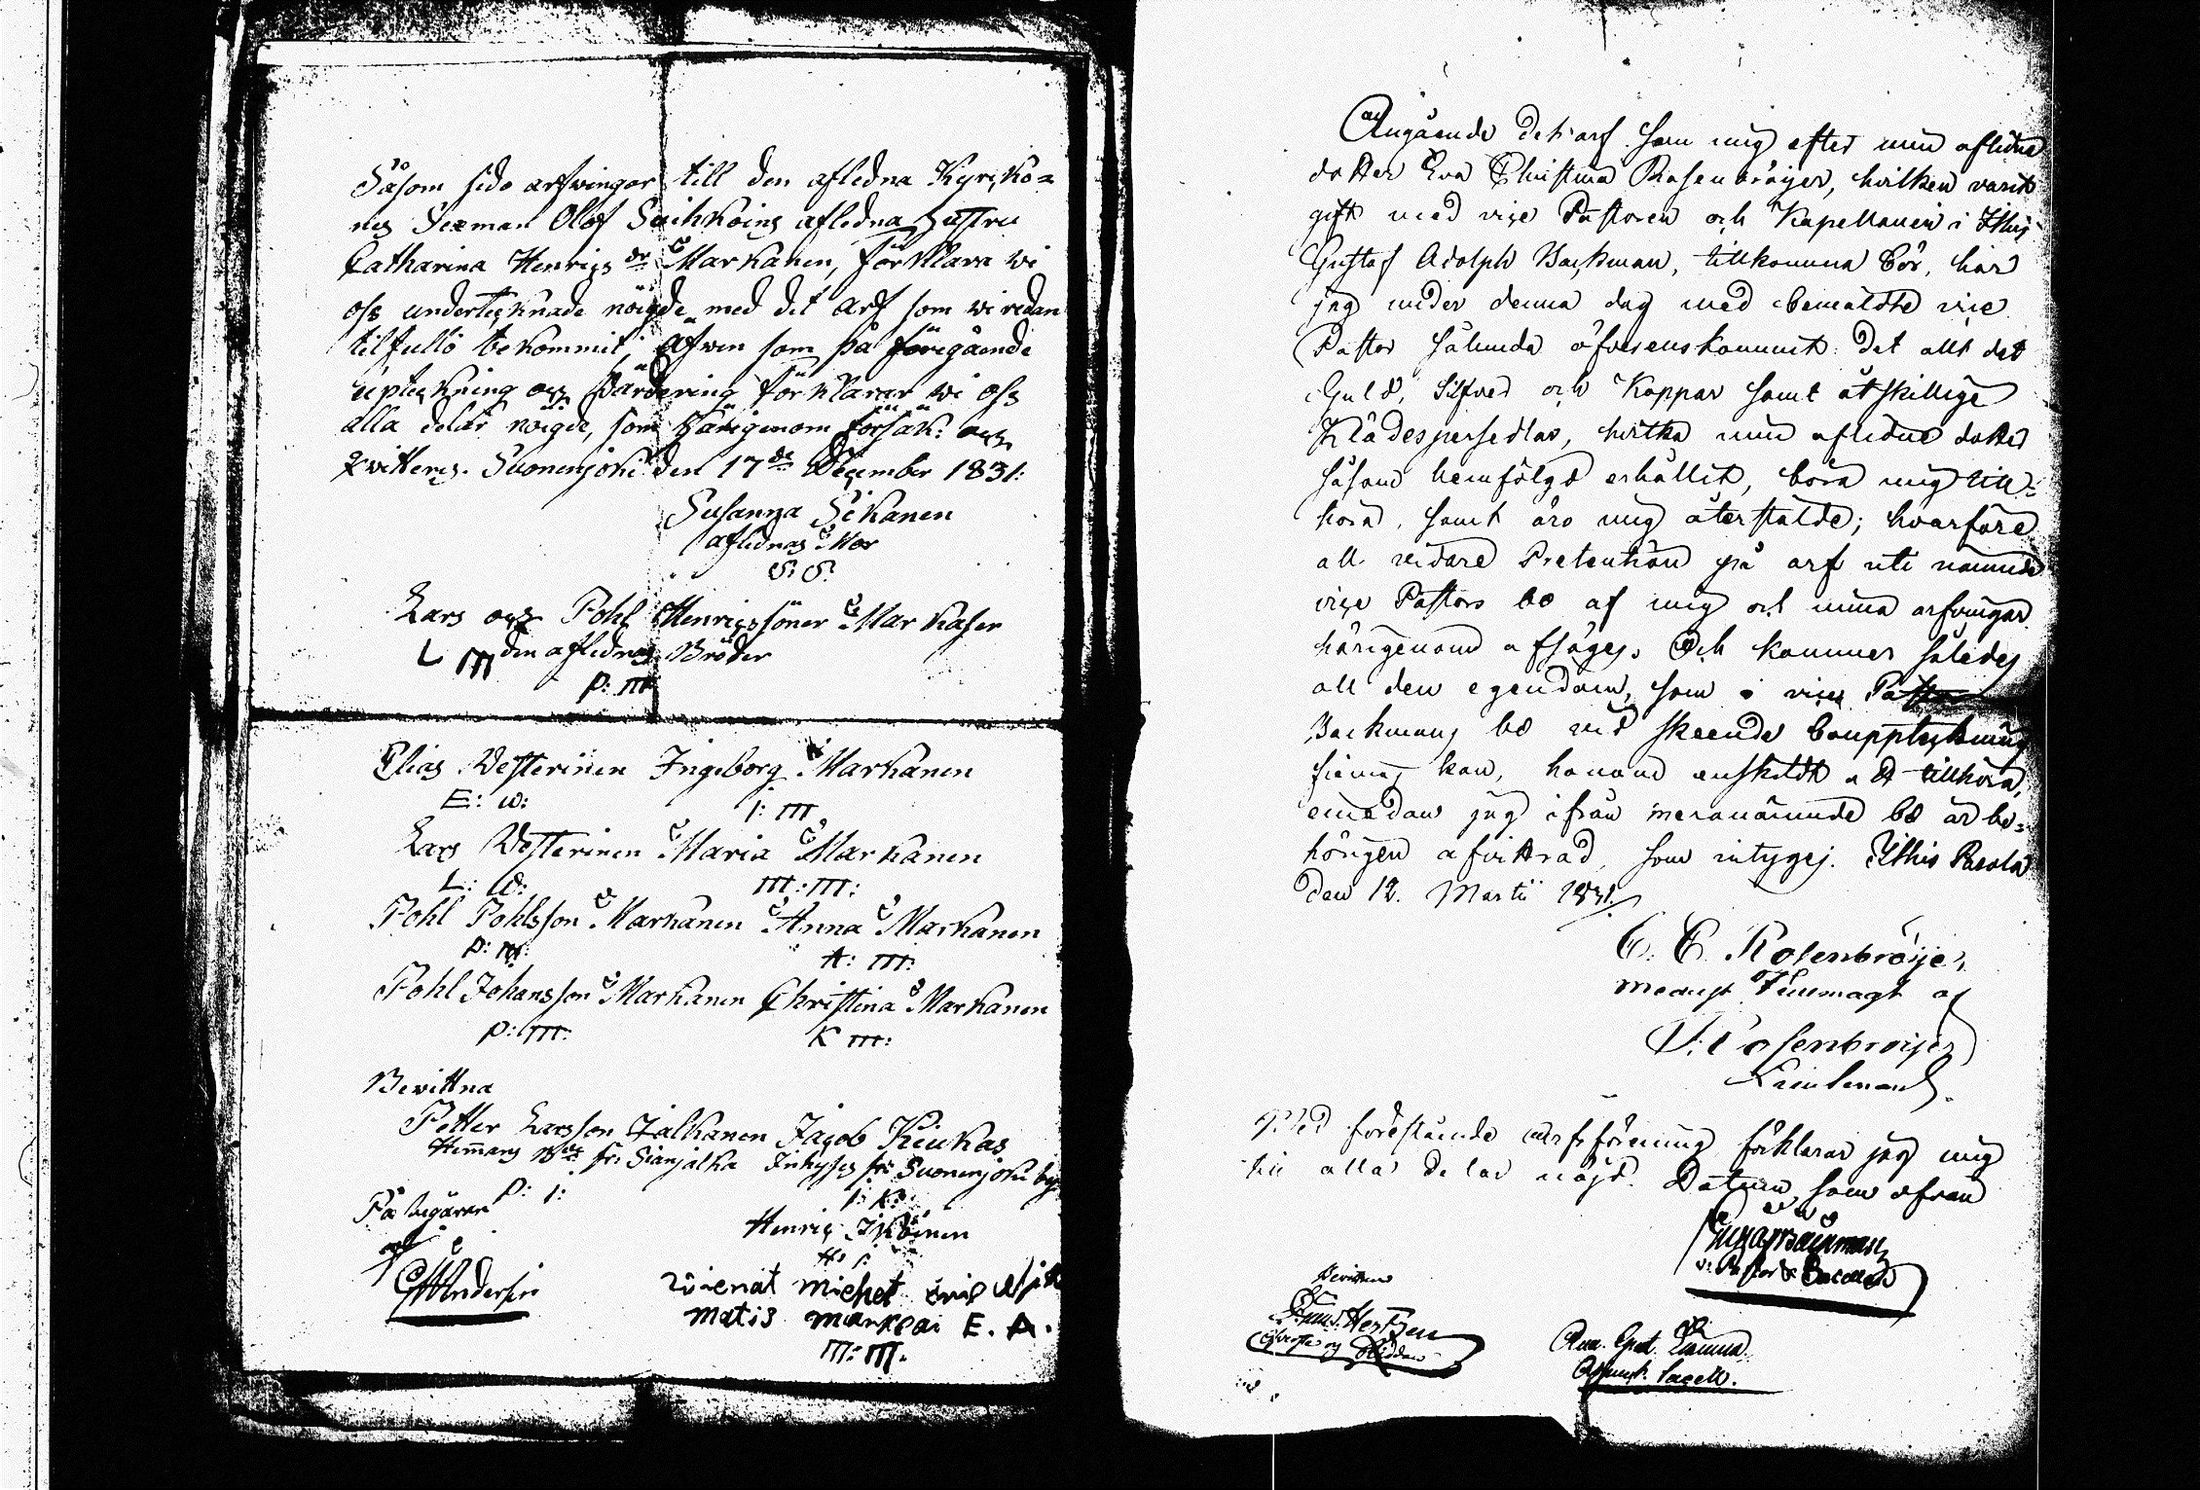 Såsom sido arfwingar till den aflidna Kyrcko=
nes Sexman Olof Saihkoins aflidna Hustru
Catharina Henrics dr Markanen, förklara wi
oss undertecknade nöigde med det arf som wi redan
tilfullo bekommit, äfwen som på föregående
uptekning och Värdering förklarar wi oss
alla delar nöigde, som härigenom försäk: och
qwitteras. Suonenjoki den 17de December 1831:
Susanna Sikanen
aflidnas Mor
S: S:
Lars och Pohl Henricssöner Markaser
L M den aflidnas Bröder
P: M
Elias Vesterinen Ingeborg Markanen
E: W: I: M
Lars Vesterinen Maria Markanen
L: W: M: M:
Pohl Pohlsson Markanen Anna Markanen
P: M: A: M:
Pohl Johansson Markanen Christina Markanen
P: M: K M:
Bewittna
Petter Larsson Jalkanen Jacob Kiukas
Hemmans fr: Sianjalka Inhyses fr: Suonenjoki by
P: I: I: K:
På begäran
Henric Ikäinen
H: I:
Anderssin
michel
matis E. A.
M: M.
Angående det arf som mig efter min aflidna
dotter Eva Christina Rosenbröijer, hvilken varit
gift med vice Pastoren och Kapellanen i Ithis
Gustaf Adolph Backman, tillkomma bör, har
jag under denna dag med bemäldte vice
Pastor sålunda öfverenskommit: Det allt det
Guld, Silfver och Koppar samt åtskillige
Klädespersedlar, hvilka min aflidne dotter
såsom hemfölgd erhållit, böra mig till=
höra, samt äro mig återstälde; hvarföre
all vidare Pretention på arf uti nämnde
vice Pastors bo af mig och mina arfvingar
härigenom afsäges. Och kommer således
all den egendom, som i vice Pastor
Backmans bo vid skeende bouppteckning
finnas kan, honom enskildt att tillhöra,
emedan jag ifrån meranämnde bo är be=
hörigen afvittrad, som intygas. Ithis Pasola
den 12. Martii 1831.
C. C. Rosenbröijer,
medelst Fullmagt af
Rosenbröijer
Lieutenant.
Med förestående arfsförening förklarar jag mig
till alla delar nöjd. Datum, som ofvan
Gust. Ad. Backman
v. Pastor &
Bevittna
Hertzen
And. Gust.
Adjunct. Sacell.